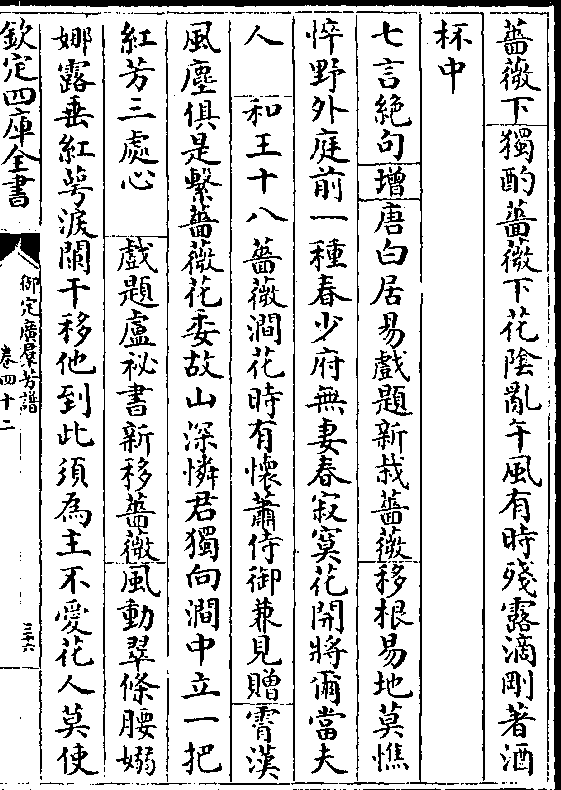 薔薇下獨酌薔薇下花陰亂午風有時殘露滴剛著酒
杯中
七言絶句增唐白居易戲題新栽薔薇移根易地莫憔
悴野外庭前一種春少府無妻春寂寞花開將爾當夫
人　和王十八薔薇澗花時有懷蕭侍御兼見贈霄漢
風塵俱是繫薔薇花委故山深憐君獨向澗中立一把
紅芳三處心　戲題盧祕書新移薔薇風動翠條腰嫋
娜露垂紅萼淚闌干移他到此須為主不愛花人莫使
欽定四庫全書
御定廣羣芳譜
卷四十二
三十六